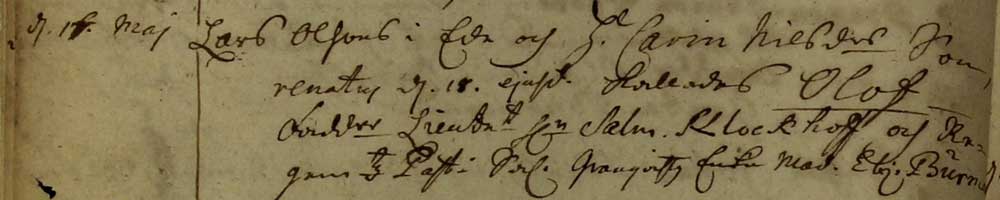 d. 15. Maj Lars Olssons i Ede och H. Carin Nilsdrs Son,
renatus d. 18. ejusd. Kallades Olof
Faddrar Lieutnt Hn Salm. Klockhoff och Re-
gemtz Past: Sal. Enka Mad. Elis. Bürn